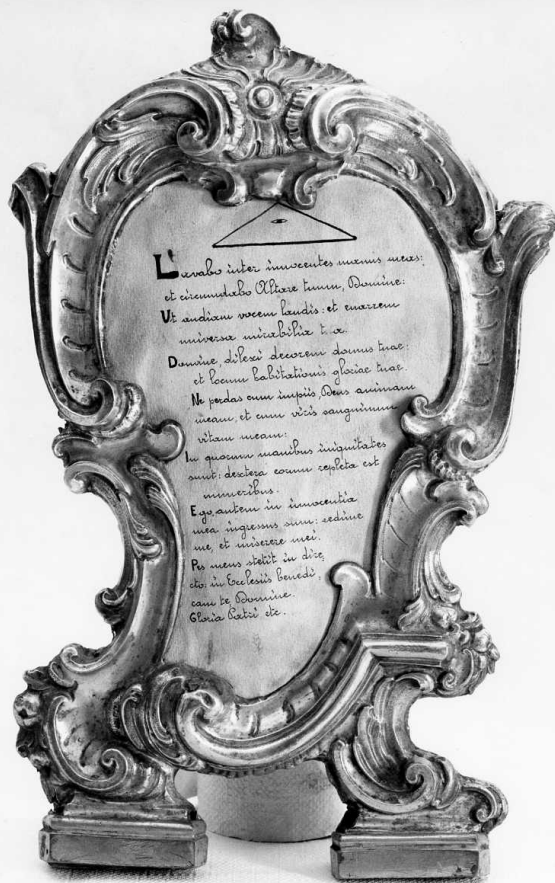 Lavabo inter innocentes manus meas:
et circumdabo Altare tuum, Domine:
Ut audiam vocem laudis: et enarrem
universa mirabilia t a.
Domine, dilexi decorem domus tuae:
et locum habitationis gloriae tuae.
Ne perdas cum impiis, Deus animam
meam, et cum viris sanguinum
vitam meam:
In quorum manibus iniquitates
sunt: dextera eorum repleta est
muneribus.
Ego, autem in innocentia
mea ingressus sum: redime
me, et miserere mei.
Pes meus stetit in dire,
cto: in Ecclesiis benedi,
cam te Domine.
Gloria Patri etc.